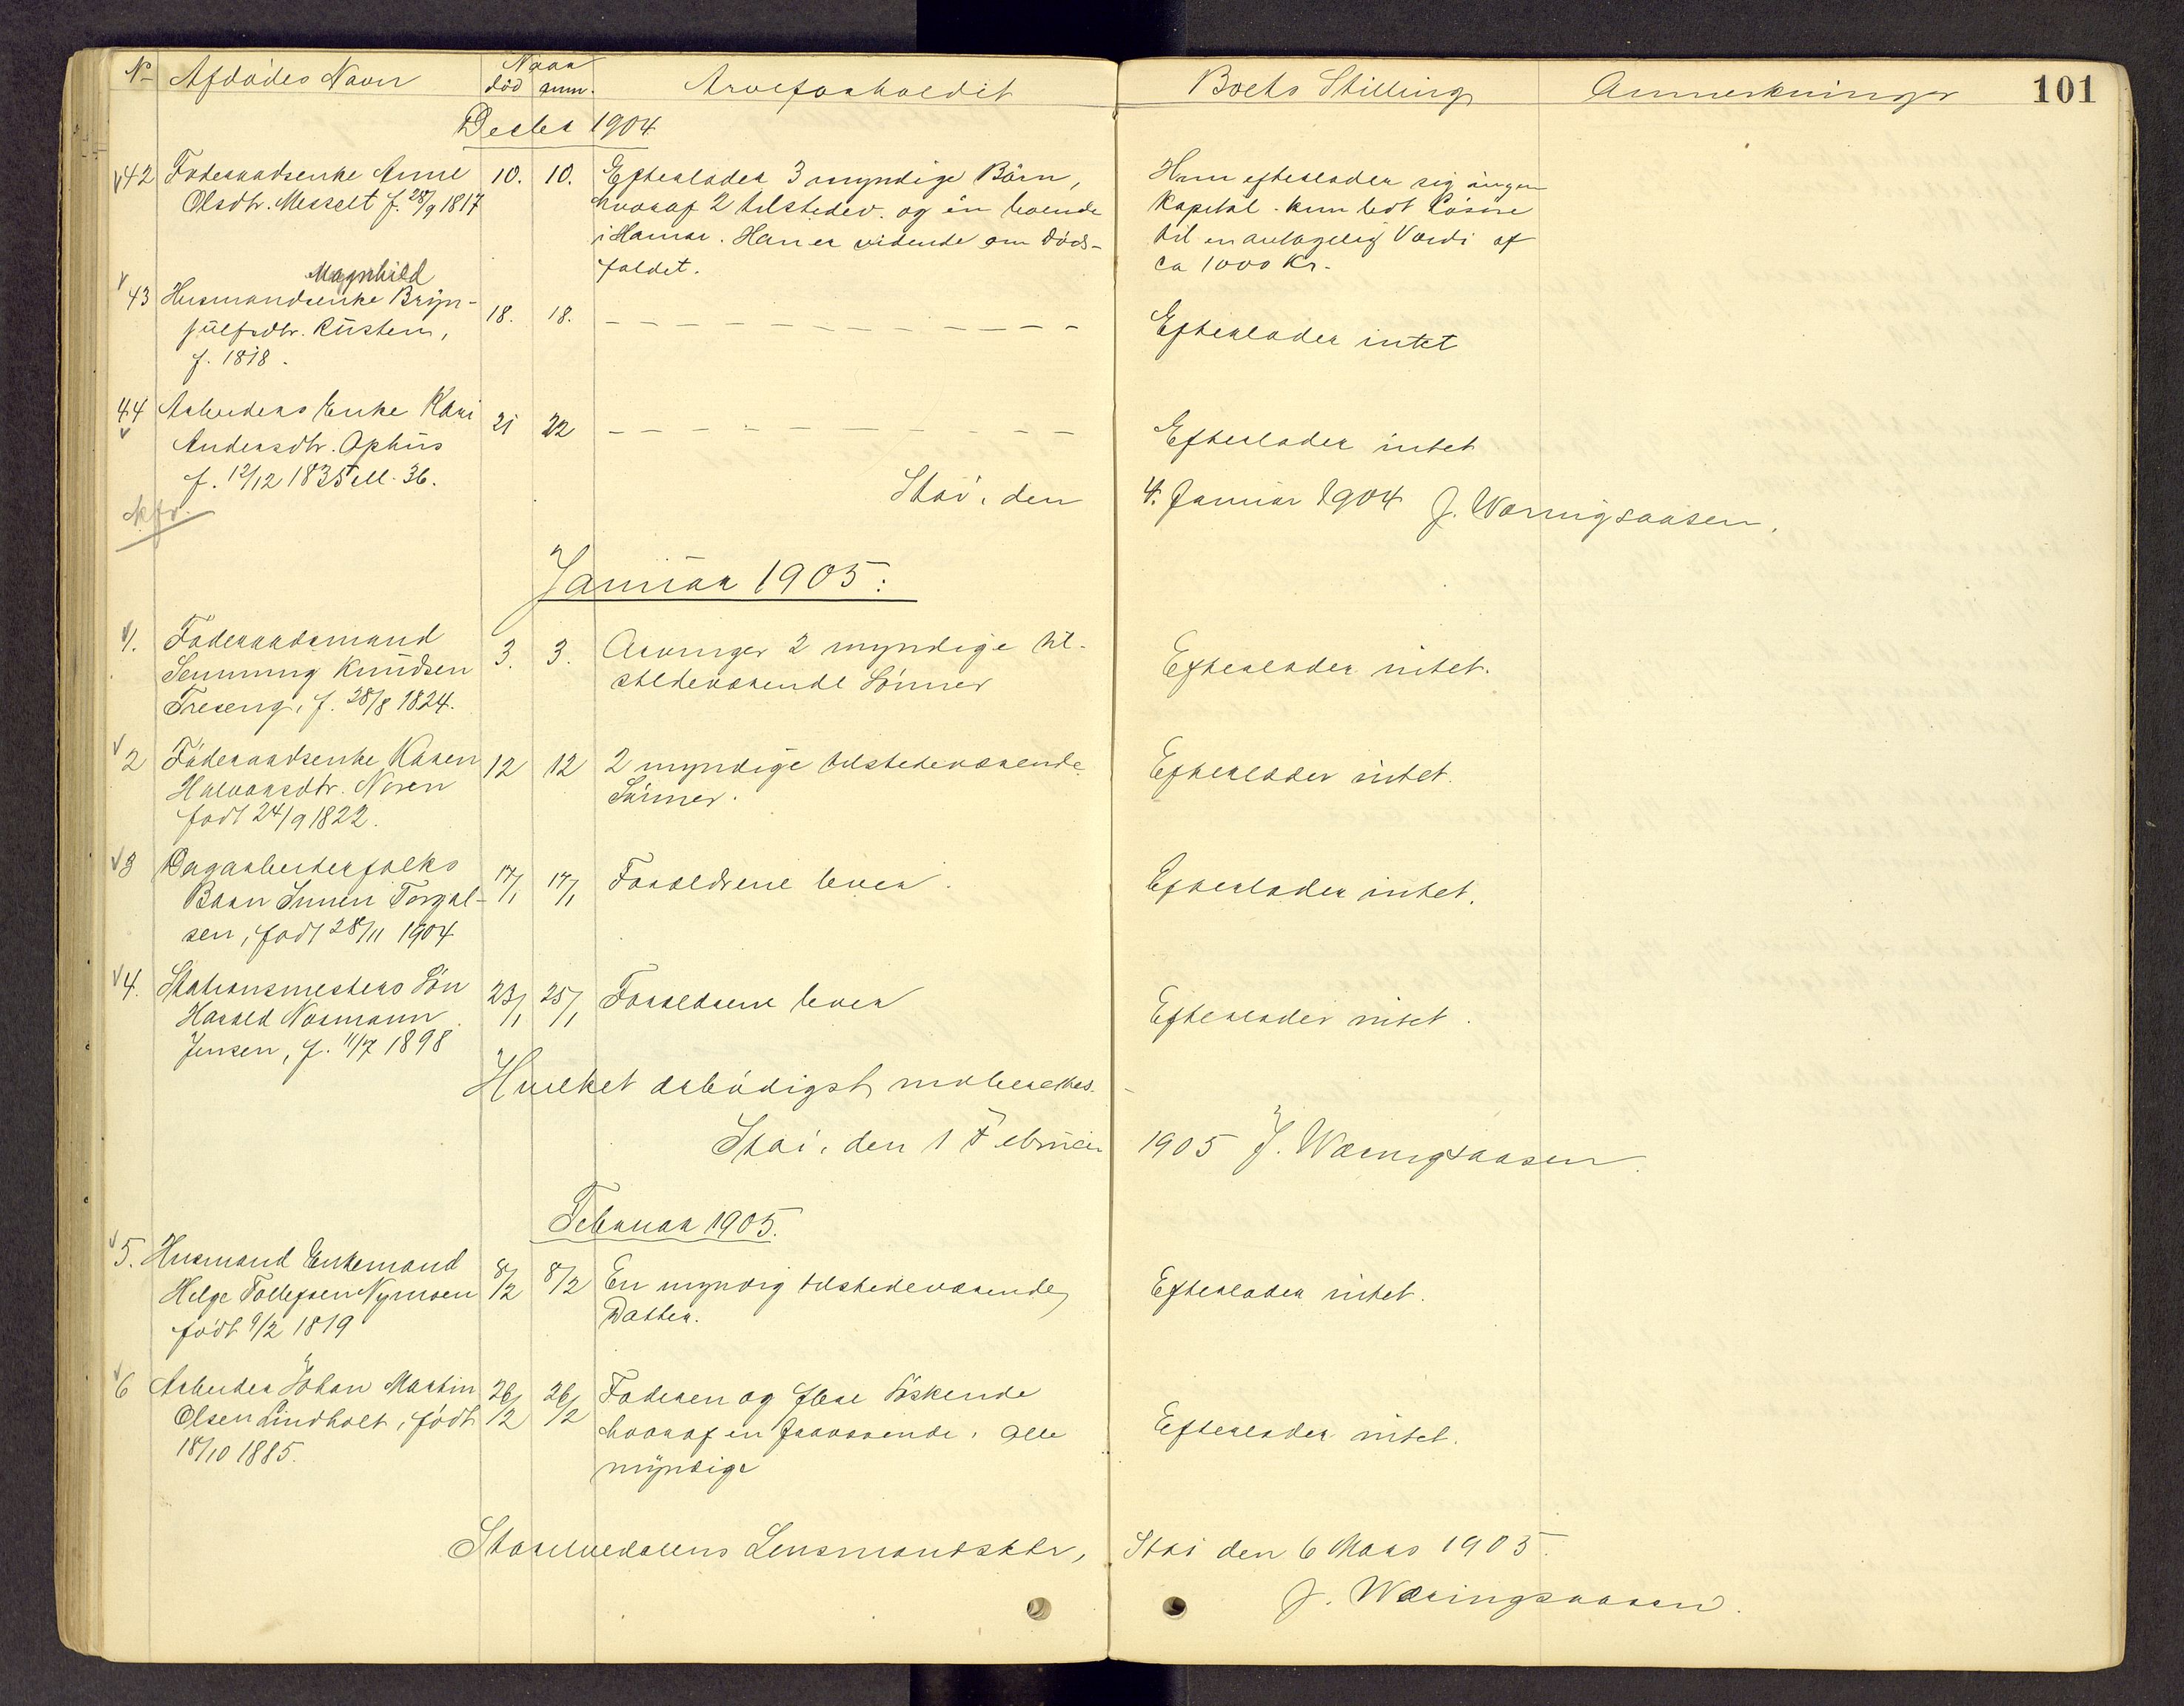 No Afdødes Navn Naar død anm. Arveforholdet Boets Stilling Anmerkninger 101
Decbr 1904
42 Føderaadsenke Anne 10. 10. Efterlader 3 myndige Børn,
Olsdtr. Messelt f. 28/9 1817 hvoraf 2 tilstedev. og en boende
i Hamar. Han er vidende om døds-
faldet.
Hun efterlader sig ingen
Kapital. kun lidt Løsøre
til en antagelig Værdi af
ca 1000 Kr.
Magnhild
43 Husmandsenke Bryn- 18. 18. Efterlader intet
julfsdtr. Rusten,
f. 1818.
44 Arbeiders Enke Kari 21 22 Efterlader intet
Andersdtr. Ophus
f. 12/12 1835 ell. 36.
Stai, den 4. Januar 1904 J. Wæringsaasen.
Januar 1905.
1. Føderaadsmand 3. 3. Arvinger 2 myndige til- Efterlader intet.
Semming Knudsen stedeværende Sønner
Treseng, f. 28/8 1824.
2 Føderaadsenke Karen 12 12 2 myndige tilstedeværende Efterlader intet.
Halvorsdtr. Noren Sønner.
født 24/9 1822.
3 Dagarbeiderfolks 17/1 17/1 Forældrene lever. Efterlader intet.
Barn Torgal-
sen, født 28/11 1904
4. Stationsmesters Søn 23/1 25/1 Forældrene lever Efterlader intet.
Harald Normann
Jensen, f. 11/7 1898
Hvilket ærbødigst indberettes.
Stai, den 1 Februar 1905 J. Wæringsaasen.
Februar 1905.
5. Husmand Enkemand 8/2 8/2 En myndig tilstedeværende Efterlader intet.
Helge Tollefsen Nymoen Datter.
født 9/2 1819
6 Arbeider Johan Martin 26/2 26/2 Faderen og flere Søskende Efterlader intet.
Olsen Lindholt, født hvoraf en fraværende. Alle
18/10 1885. myndige
Storelvedalens Lensmandsktr, Stai den 6 Mars 1905.
J. Wæringsaasen.